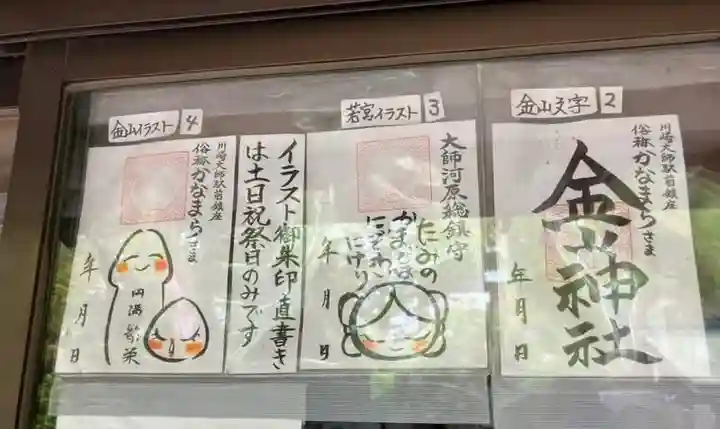 金山文字 2
川崎大師駅前鎮座
俗称かなまらさま
金山神社
年月日
若宮イラスト 3
大師河原総鎮守
たみの
かまどは
にぎわい
にけり
年月日
イラスト御朱印直書き
は土日祝祭日のみです
金山イラスト 4
川崎大師駅前鎮座
俗称かなまらさま
円満
繁栄
年月日